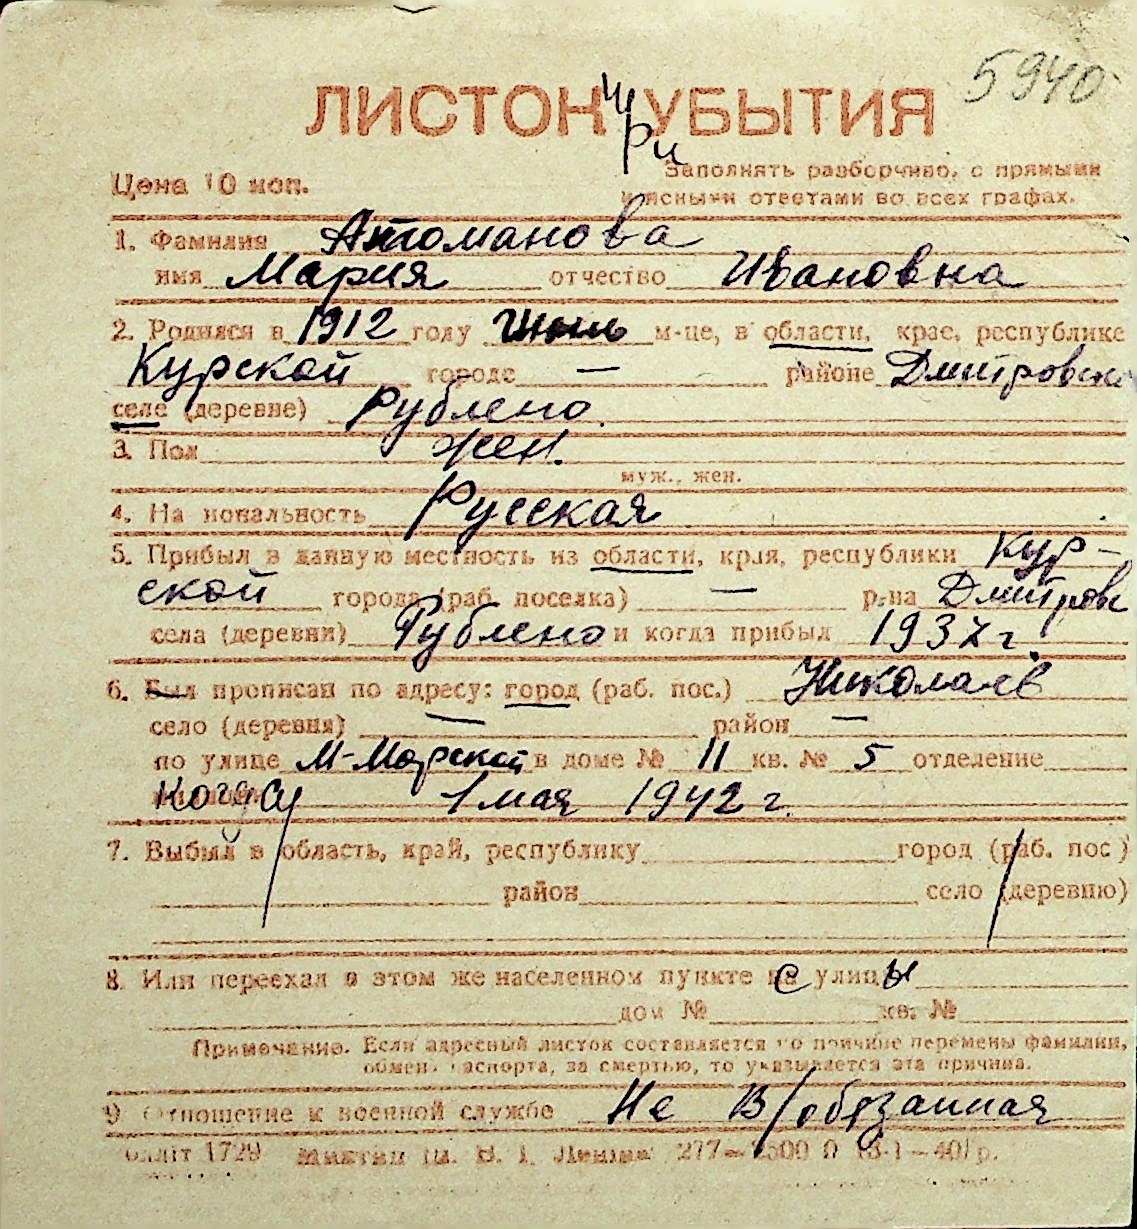 5940
ЛИСТОК при УБЫТИЯ
Цена 10 коп.
Заполнять разборчиво, с прямыми
и ясными ответами во всех графах.
1. Фамилия Атоманова
имя Мария отчество Ивановна
2. Родился в 1912 году м-це, в области, крае, республике
Курской городе — районе Дмитровск
селе (деревне) Рублено
3. Пол жен.
муж., жен.
4. Национальность Русская
5. Прибыл в данную местность из области, края, республики Кур-
ской города (раб. поселка) — р-на Дмитровс
села (деревни) Рублено и когда прибыл 1937 г.
6. Был прописан по адресу: город (раб. пос.) Николаев
село (деревня) — район —
по улице М-Морской в доме № 11 кв. № 5 отделение
когда 1 мая 1942 г.
7. Выбыл в область, край, республику город (раб. пос)
район село (деревню)
8. Или переехал в этом же населенном пункте с улицы
дом № кв. №
Примечание. Если адресный листок составляется по причине перемены фамилии,
обмена паспорта, за смертью, то указывается эта причина.
9 Отношение к военной службе Не в/обязанная
1729 277— 2500